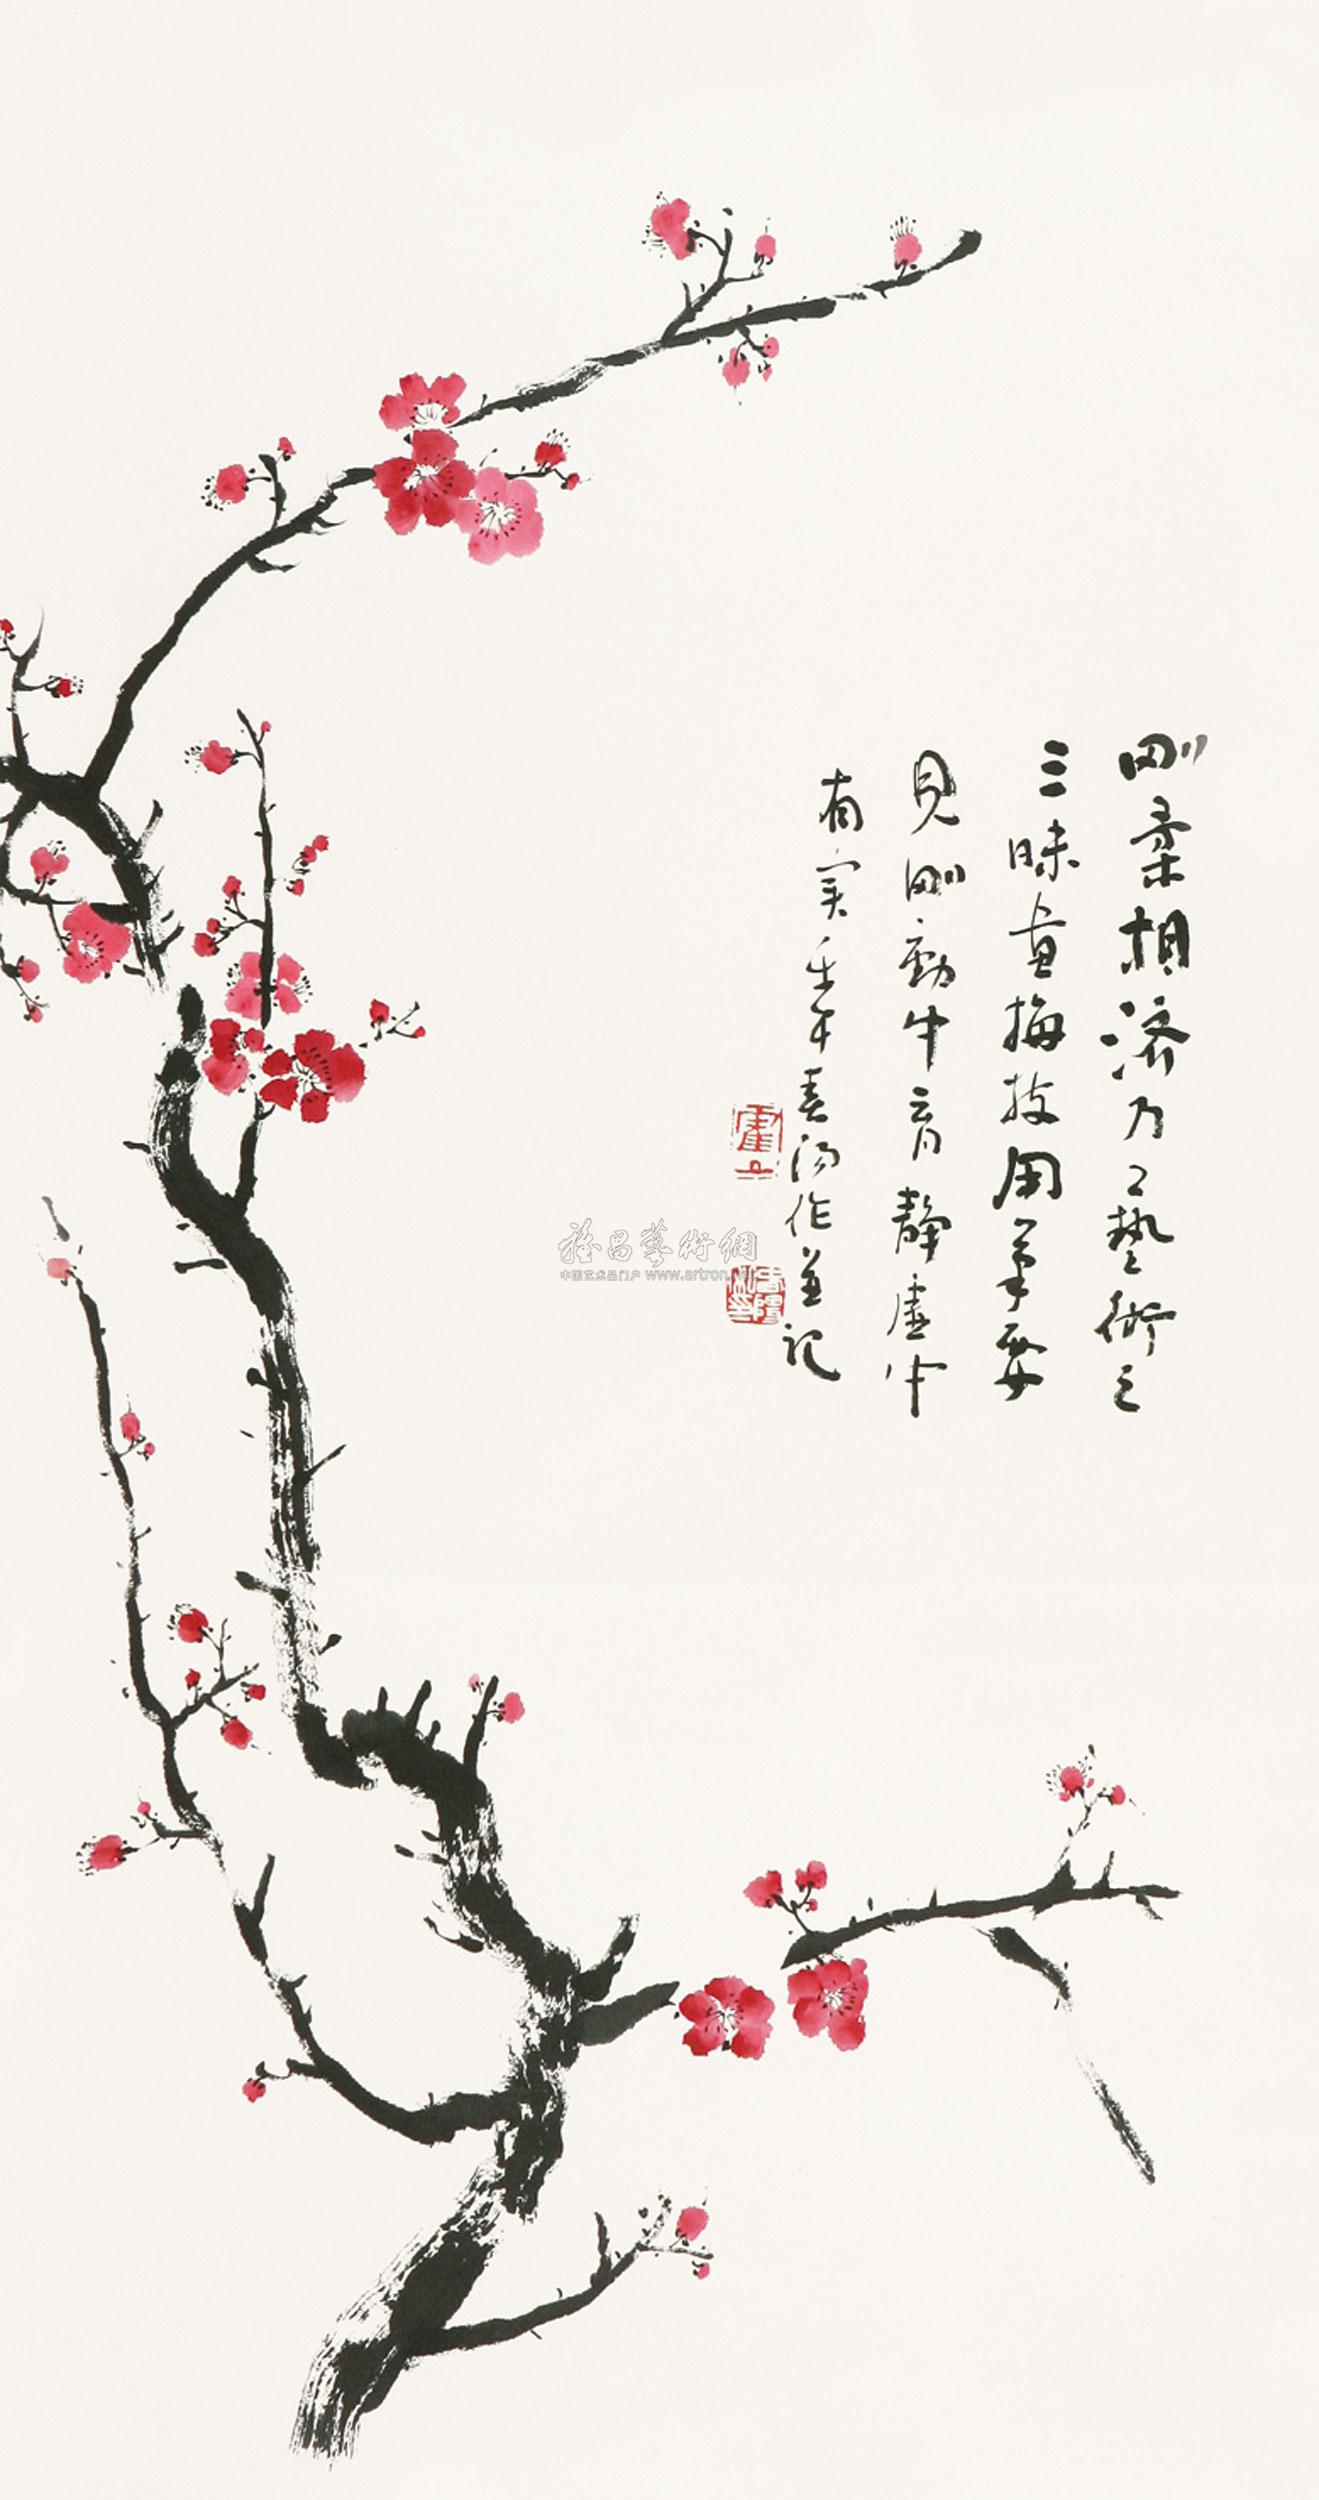 刚柔相济乃藝術之
三昧画梅枝用笔要
見刚動中有靜虚中
有实壬午春作並記
雅昌藝術網
中国艺术品门户 www.artron.net